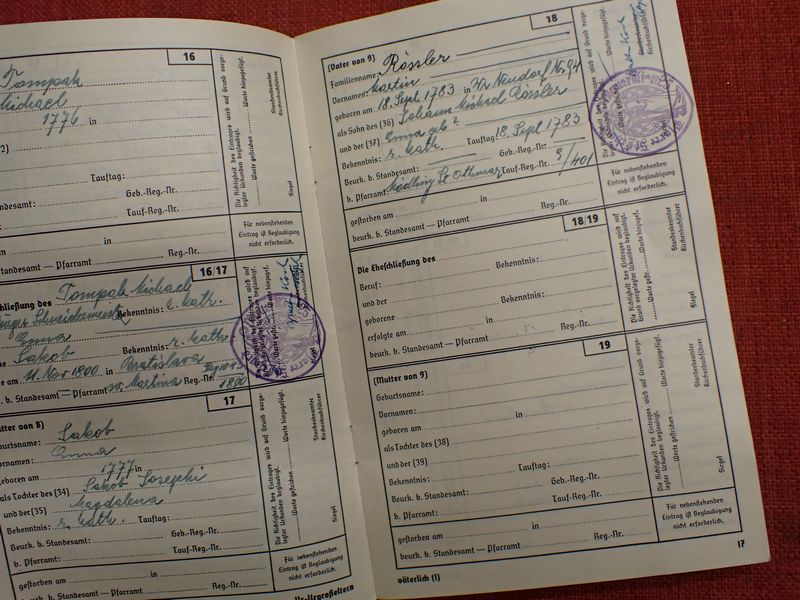 16
Tompah
Michael
1776 in
Tauftag:
Standesamt: Geb.-Reg.-Nr.
Tauf.-Reg.-Nr.
in
Standesamt — Pfarramt Reg.-Nr.
Die Richtigkeit des Eintrages wird auf Grund vorge-
legter Urkunden beglaubigt.
Worte gestrichen Worte hinzugefügt.
Standesbeamter
Kirchenbuchführer
Siegel
Für nebenstehenden
Eintrag ist Beglaubigung
nicht erforderlich.
16/17
schließung des Tompah Michael
Bekenntnis: r. kath.
Anna
Sakob Bekenntnis: r. kath.
am 11. Nov 1800. in Bratislava
Standesamt — Pfarramt sv. Martina
1800
17
(Mutter von 8)
Geburtsname: Sakob
Vornamen: Anna
geboren am 1777 in
als Tochter des (34) Sakob Josephi
und der (35) Magdalena
Bekenntnis: r. kath. Tauftag:
Beurk. b. Standesamt: Geb.-Reg.-Nr.
b. Pfarramt: Tauf.-Reg.-Nr.
gestorben am in
beurk. b. Standesamt — Pfarramt Reg.-Nr.
Die Richtigkeit des Eintrages wird auf Grund vorge-
legter Urkunden beglaubigt.
Worte gestrichen Worte hinzugefügt.
Standesbeamter
Kirchenbuchführer
Siegel
Für nebenstehenden
Eintrag ist Beglaubigung
nicht erforderlich.
18
(Vater von 9)
Familienname: Rössler
Vornamen: Martin
geboren am 18. Sept. 1783 in Wr. Neudorf Nr. 94
als Sohn des (36) Johann Michael Rössler
und der (37) Anna geb. ?
Bekenntnis: r. kath. Tauftag: 18. Sept. 1783
Beurk. b. Standesamt: Geb.-Reg.-Nr.
b. Pfarramt: Mödling St. Othmar Tauf.-Reg.-Nr. 9/401
gestorben am in
beurk. b. Standesamt — Pfarramt Reg.-Nr.
Die Richtigkeit des Eintrages wird auf Grund vorge-
legter Urkunden beglaubigt.
Worte gestrichen Worte hinzugefügt.
Standesbeamter
Kirchenbuchführer
Für nebenstehenden
Eintrag ist Beglaubigung
nicht erforderlich.
18/19
Die Eheschließung des
Beruf: Bekenntnis:
und der
geborene Bekenntnis:
erfolgte am in
beurk. b. Standesamt — Pfarramt Reg.-Nr.
Die Richtigkeit des Eintrages wird auf Grund vorge-
legter Urkunden beglaubigt.
Worte gestr. Worte hinzugefügt.
Standesbeamter
Kirchenbuchführer
Siegel
19
(Mutter von 9)
Geburtsname:
Vornamen:
geboren am in
als Tochter des (38)
und der (39)
Bekenntnis: Tauftag:
Beurk. b. Standesamt: Geb.-Reg.-Nr.
b. Pfarramt: Tauf.-Reg.-Nr.
gestorben am in
beurk. b. Standesamt — Pfarramt Reg.-Nr.
Die Richtigkeit des Eintrages wird auf Grund vorge-
legter Urkunden beglaubigt.
Worte gestrichen Worte hinzugefügt.
Standesbeamter
Kirchenbuchführer
Siegel
Für nebenstehenden
Eintrag ist Beglaubigung
nicht erforderlich.
väterlich (I)
17